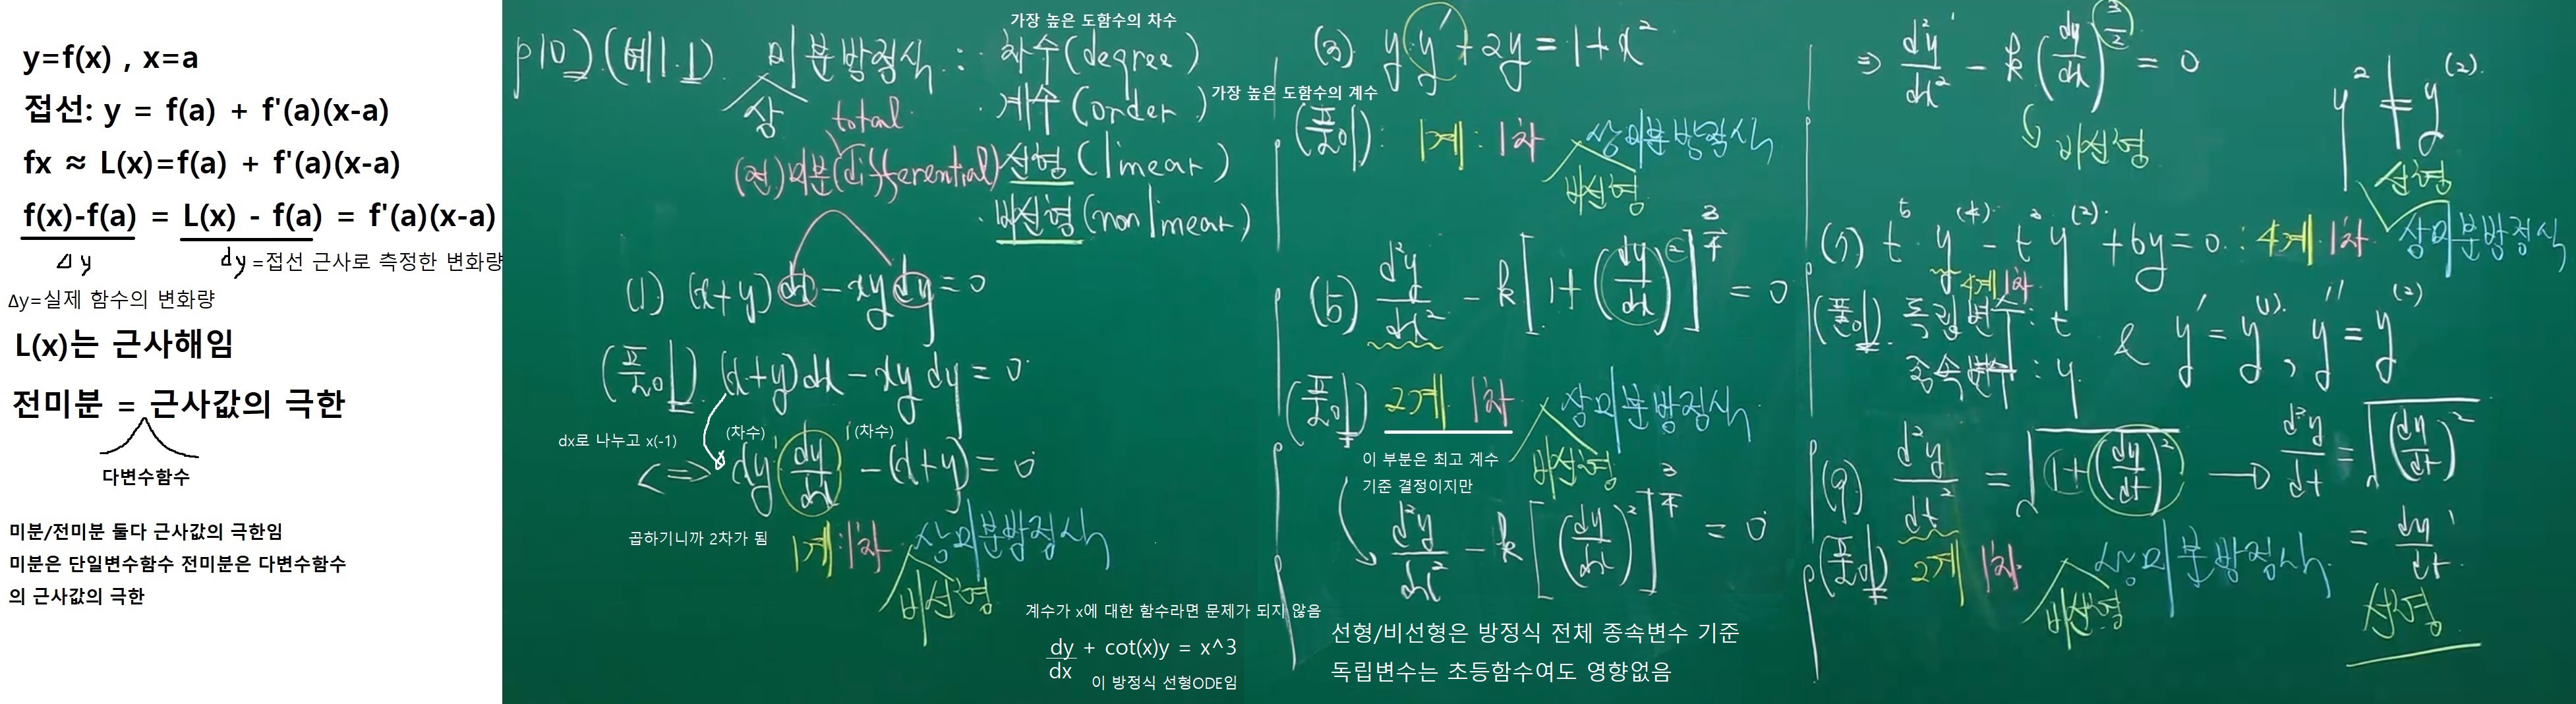 y=f(x) , x=a
접선: y = f(a) + f'(a)(x-a)
fx ≈ L(x)=f(a) + f'(a)(x-a)
f(x)-f(a) = L(x) - f(a) = f'(a)(x-a)
⊿y
dy =접선 근사로 측정한 변화량
Δy=실제 함수의 변화량
L(x)는 근사해임
전미분 = 근사값의 극한
다변수함수
미분/전미분 둘다 근사값의 극한임
미분은 단일변수함수 전미분은 다변수함수
의 근사값의 극한
p10) (예1.1) 미분방정식 :
상
가장 높은 도함수의 차수
차수(degree)
· 계수(order)
가장 높은 도함수의 계수
total
(전)미분(differential)
· 선형(linear)
· 비선형(nonlinear)
(1) (x+y)dx - xydy = 0
(풀이) (x+y)dx - xydy = 0
dx로 나누고 x(-1)
(차수) 1(차수)
<=> xy dy/dx - (x+y) = 0
곱하기니까 2차가 됨
1계 1차 상미분방정식
비선형
계수가 x에 대한 함수라면 문제가 되지 않음
dy/dx + cot(x)y = x^3
이 방정식 선형ODE임
(3) yy' + 2y = 1 + x²
(풀이): 1계: 1차 상미분방정식
비선형
(5) d²y/dx² - k[1+(dy/dx)²]^(3/4) = 0
(풀이) 2계 1차 상미분방정식
비선형
이 부분은 최고 계수
기준 결정이지만
d²y/dx² - k[(dy/dx)²]^(3/4) = 0
선형/비선형은 방정식 전체 종속변수 기준
독립변수는 초등함수여도 영향없음
⇒ d²y/dx² - k(dy/dx)^(3/2) = 0
비선형
y² ≠ y⁽²⁾
선형
(7) t⁵y⁽⁴⁾ - t³y⁽²⁾ + 6y = 0 : 4계 1차 상미분방정식
4계 1차
(풀이) 독립변수: t & y' = y⁽¹⁾, y'' = y⁽²⁾
종속변수: y
(9) d²y/dt² = √(1+(dy/dt)²) → d²y/dt = √((dy/dt)²)
= dy/dt
(풀이) 2계 1차 상미분방정식
비선형
선형